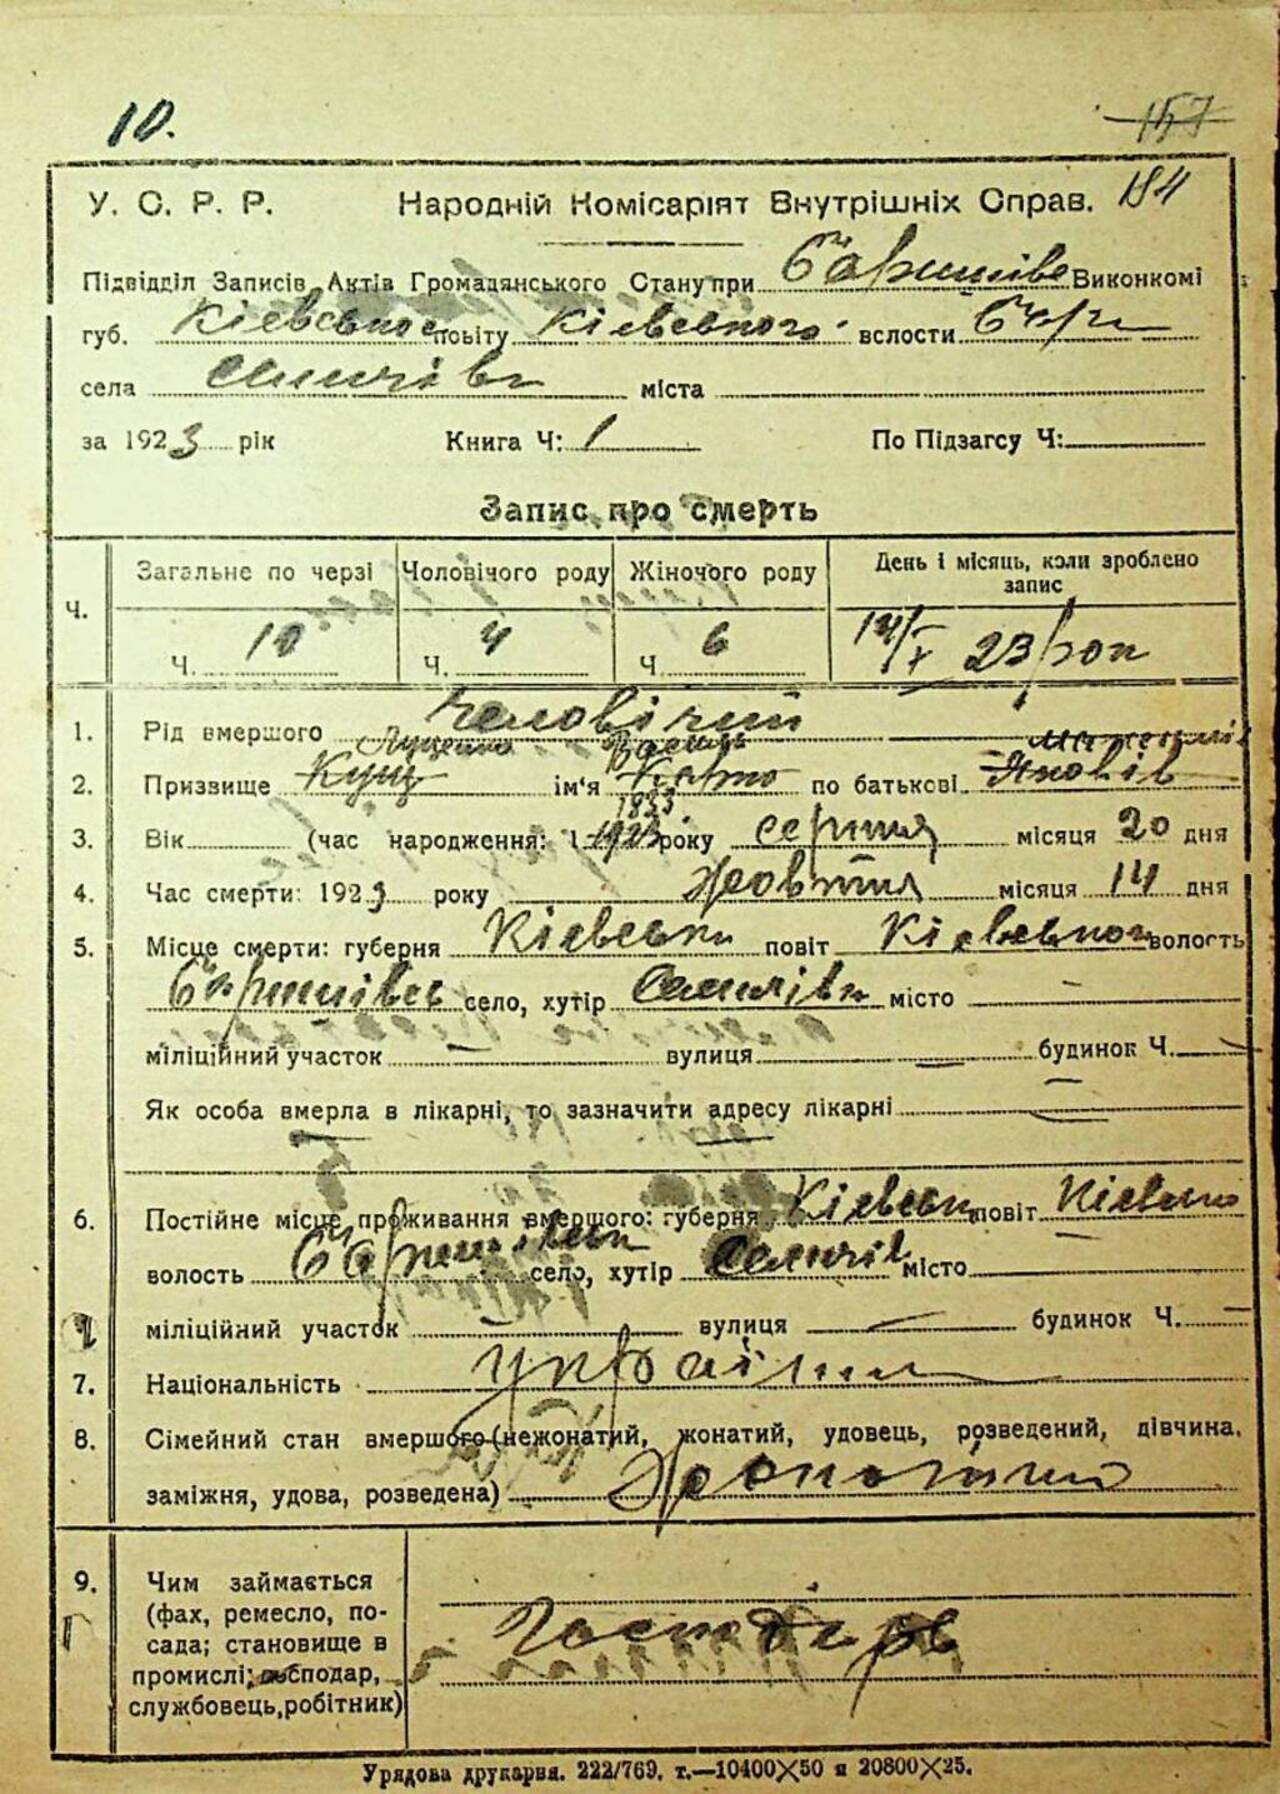 10.
157
У. С. Р. Р. Народній Комісаріят Внутрішніх Справ. 184
Підвідділ Записів Актів Громадянського Стану при Баришівс Виконкомі
губ. Київсько повіту Київського вслости Бари
села Селичівка міста
за 1923 рік Книга Ч: 1 По Підзагсу Ч:
Запис про смерть
Загальне по черзі Чоловічого роду Жіночого роду День і місяць, коли зроблено
запис
Ч.
Ч. 10 Ч. 4 Ч. 6 14/X 23 рок
1. Рід вмершого Чоловічий
Луценко Василь
2. Призвище Кущ ім'я по батькові Яковів
1853
3. Вік (час народження: 1 1923 року серпня місяця 20 дня
4. Час смерти: 1923 року Жовтня місяця 14 дня
5. Місце смерти: губерня Київська повіт Київського волость
Баришівська село, хутір місто
міліційний участок вулиця будинок Ч.
Як особа вмерла в лікарні, то зазначити адресу лікарні
6. Постійне місце проживання вмершого: губерня Київськ повіт Київсько
волость Баришівськ село, хутір місто
міліційний участок вулиця будинок Ч.
7. Національність україн
8. Сімейний стан вмершого (нежонатий, жонатий, удовець, розведений, дівчина.
заміжня, удова, розведена) Жонатий
9. Чим займається
(фах, ремесло, по-
сада; становище в
промислі; господар,
службовець, робітник)
Господарь
Урядова друкарня. 222/769. т.—10400×50 я 20800×25.